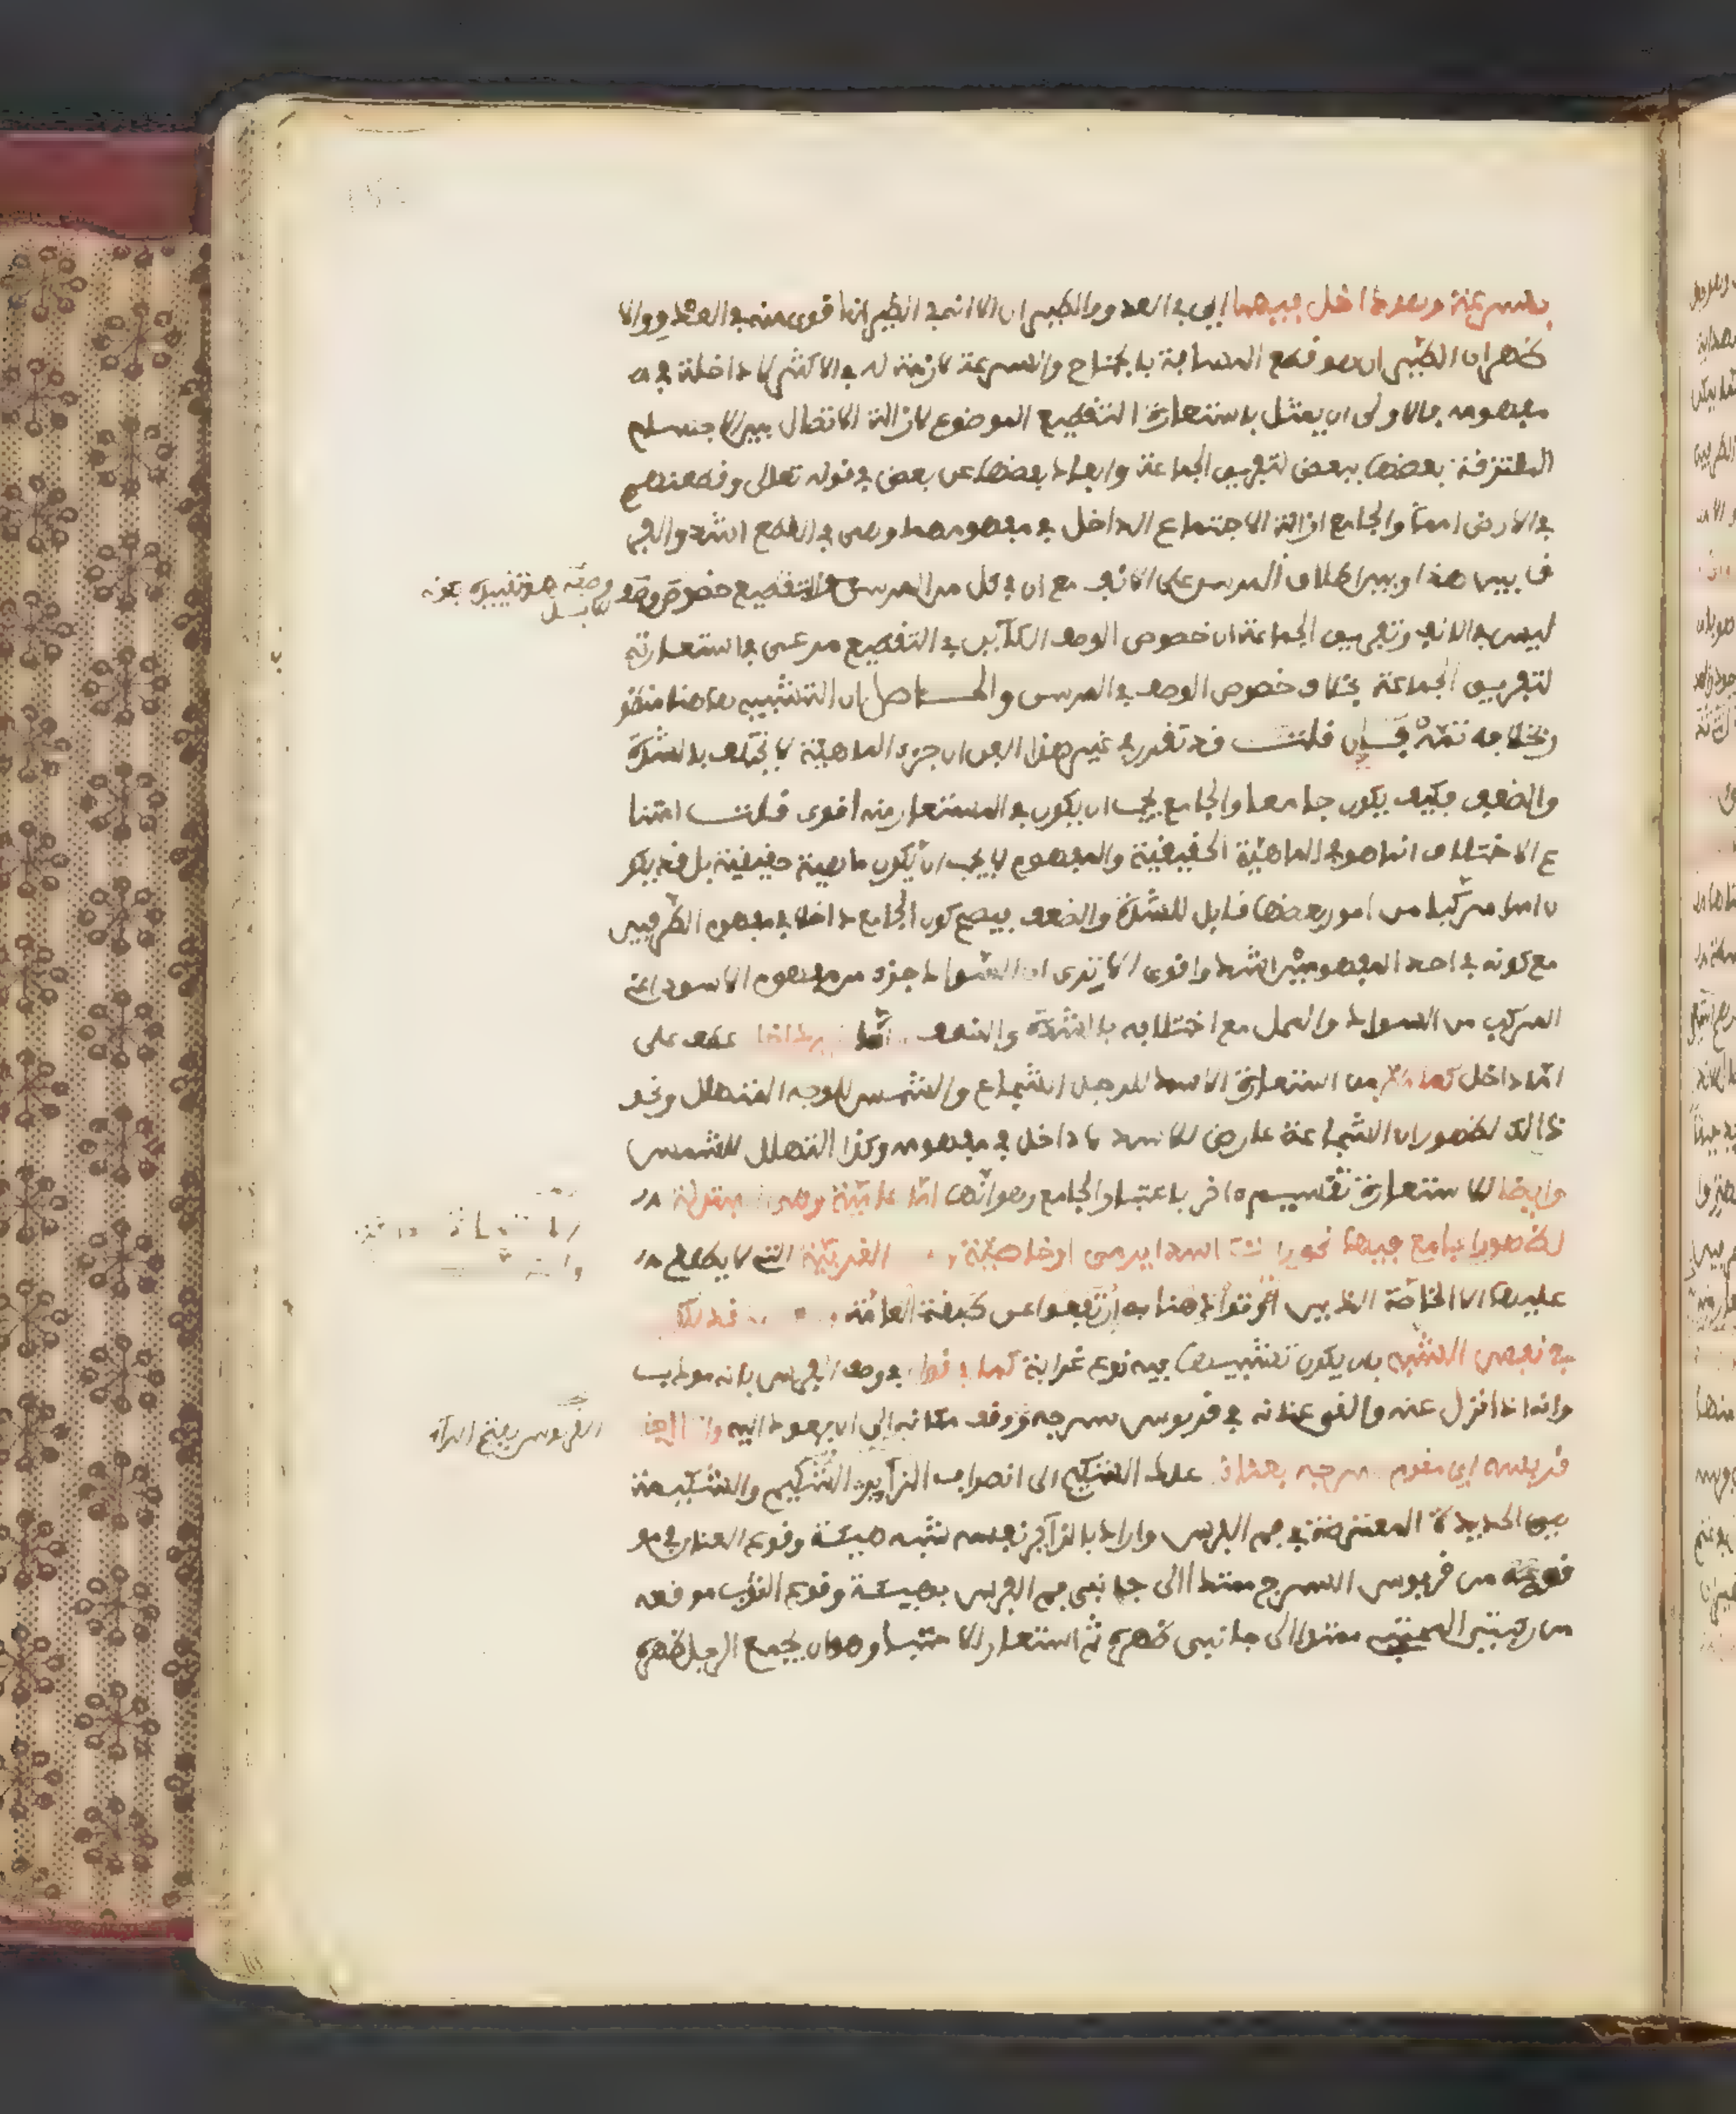 بسرعة وهو داخل فيهما اي في العدو والطيران الا انه في الطيران اقوى منه في العدو والا
ظهر ان الطيران هو قطع المسافة بالجناح والسرعة لازمة له في الاكثر لا داخلة في
مفهومه فالاولى ان يمثل باستعارة التقطيع الموضوع لازالة الاتصال بين الاجسام
الملتزقة بعضها ببعض لتفريق الجماعة وابعاد بعضها عن بعض في قوله تعالى وقطعنهم
في الارض امما والجامع ازالة الاجتماع الداخل في مفهومهما وهي في القطع اشد والفر
ق بين هذا وبين اطلاق المرسن على الانف مع ان في كل من المرسن والتقطيع خصوص وصف
ليس في الانف وتفريق الجماعة ان خصوص الوصف الكائن في التقطيع مرعي في استعارته
لتفريق الجماعة بخلاف خصوص الوصف في المرسن والحاصل ان التشبيه هاهنا منظور
وبخلافه ثمة فإن قلت قد تقرر في غير هذا الفن ان جزء الماهية لا يختلف بالشدة
والضعف فكيف يكون جامعا والجامع يجب ان يكون في المستعار منه اقوى قلت امتنا
ع الاختلاف انما هو في الماهية الحقيقية والمفهوم لا يجب ان يكون ماهية حقيقية بل قد يكو
ن امرا مركبا من امور بعضها قابل للشدة والضعف فيصح كون الجامع داخلا في مفهوم الطرفين
مع كونه في احد المفهومين اشد واقوى الا ترى ان السواد جزء من مفهوم الاسود اعني
المركب من السواد والمحل مع اختلافه بالشدة والضعف عطف على
اما داخل كما مر من استعارة الاسد للرجل الشجاع والشمس للوجه المتهلل ونحو
ذالك لظهور ان الشجاعة عارض للاسد لا داخل في مفهومه وكذا التهلل للشمس
وايضا للاستعارة تقسيم اخر باعتبار الجامع وهو انها اما عامية وهي المبتذلة
لظهور الجامع فيها نحو رايت اسدا يرمي او خاصية الغريبة التي لا يطلع
عليها الا الخاصة الذين اوتوا ذهنا به ارتفعوا عن طبقة العامة
في نفس الشبه بان يكون تشبيها فيه نوع غرابة كما في قوله في وصف الفرس بانه مودب
وانه اذا نزل عنه والقى عنانه في قربوس سرجه وقف مكانه الى ان يعود اليه
قربوسه اي مقدم سرجه بعنانه علك الشكيم الى انصراف الزائر الشكيم والشكيمة
هي الحديدة المعترضة في فم الفرس واراد بالزائر نفسه شبه هيئة وقوع العنان في مو
قعه من قربوس السرج ممتدا الى جانبي فم الفرس بهيئة وقوع الثوب موقعه
من ركبتي المحتبي ممتدا الى جانبي ظهره ثم استعار الاحتباء وهو ان يجمع الرجل ظهره
القربوس بفتح الراء